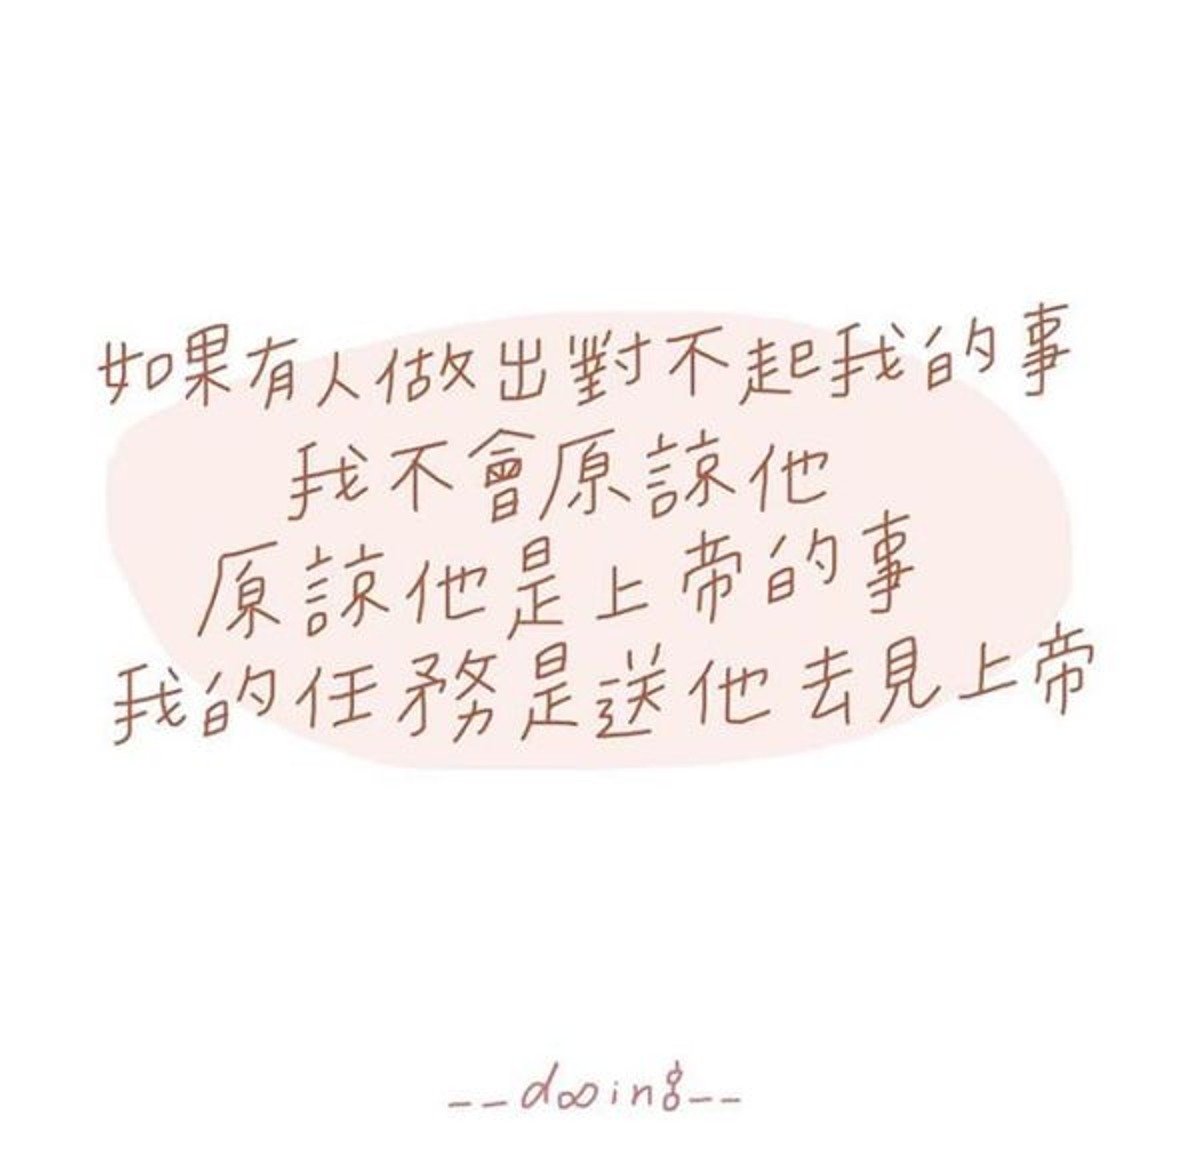 如果有人做出對不起我的事
我不會原諒他
原諒他是上帝的事
我的任務是送他去見上帝
__dooing__